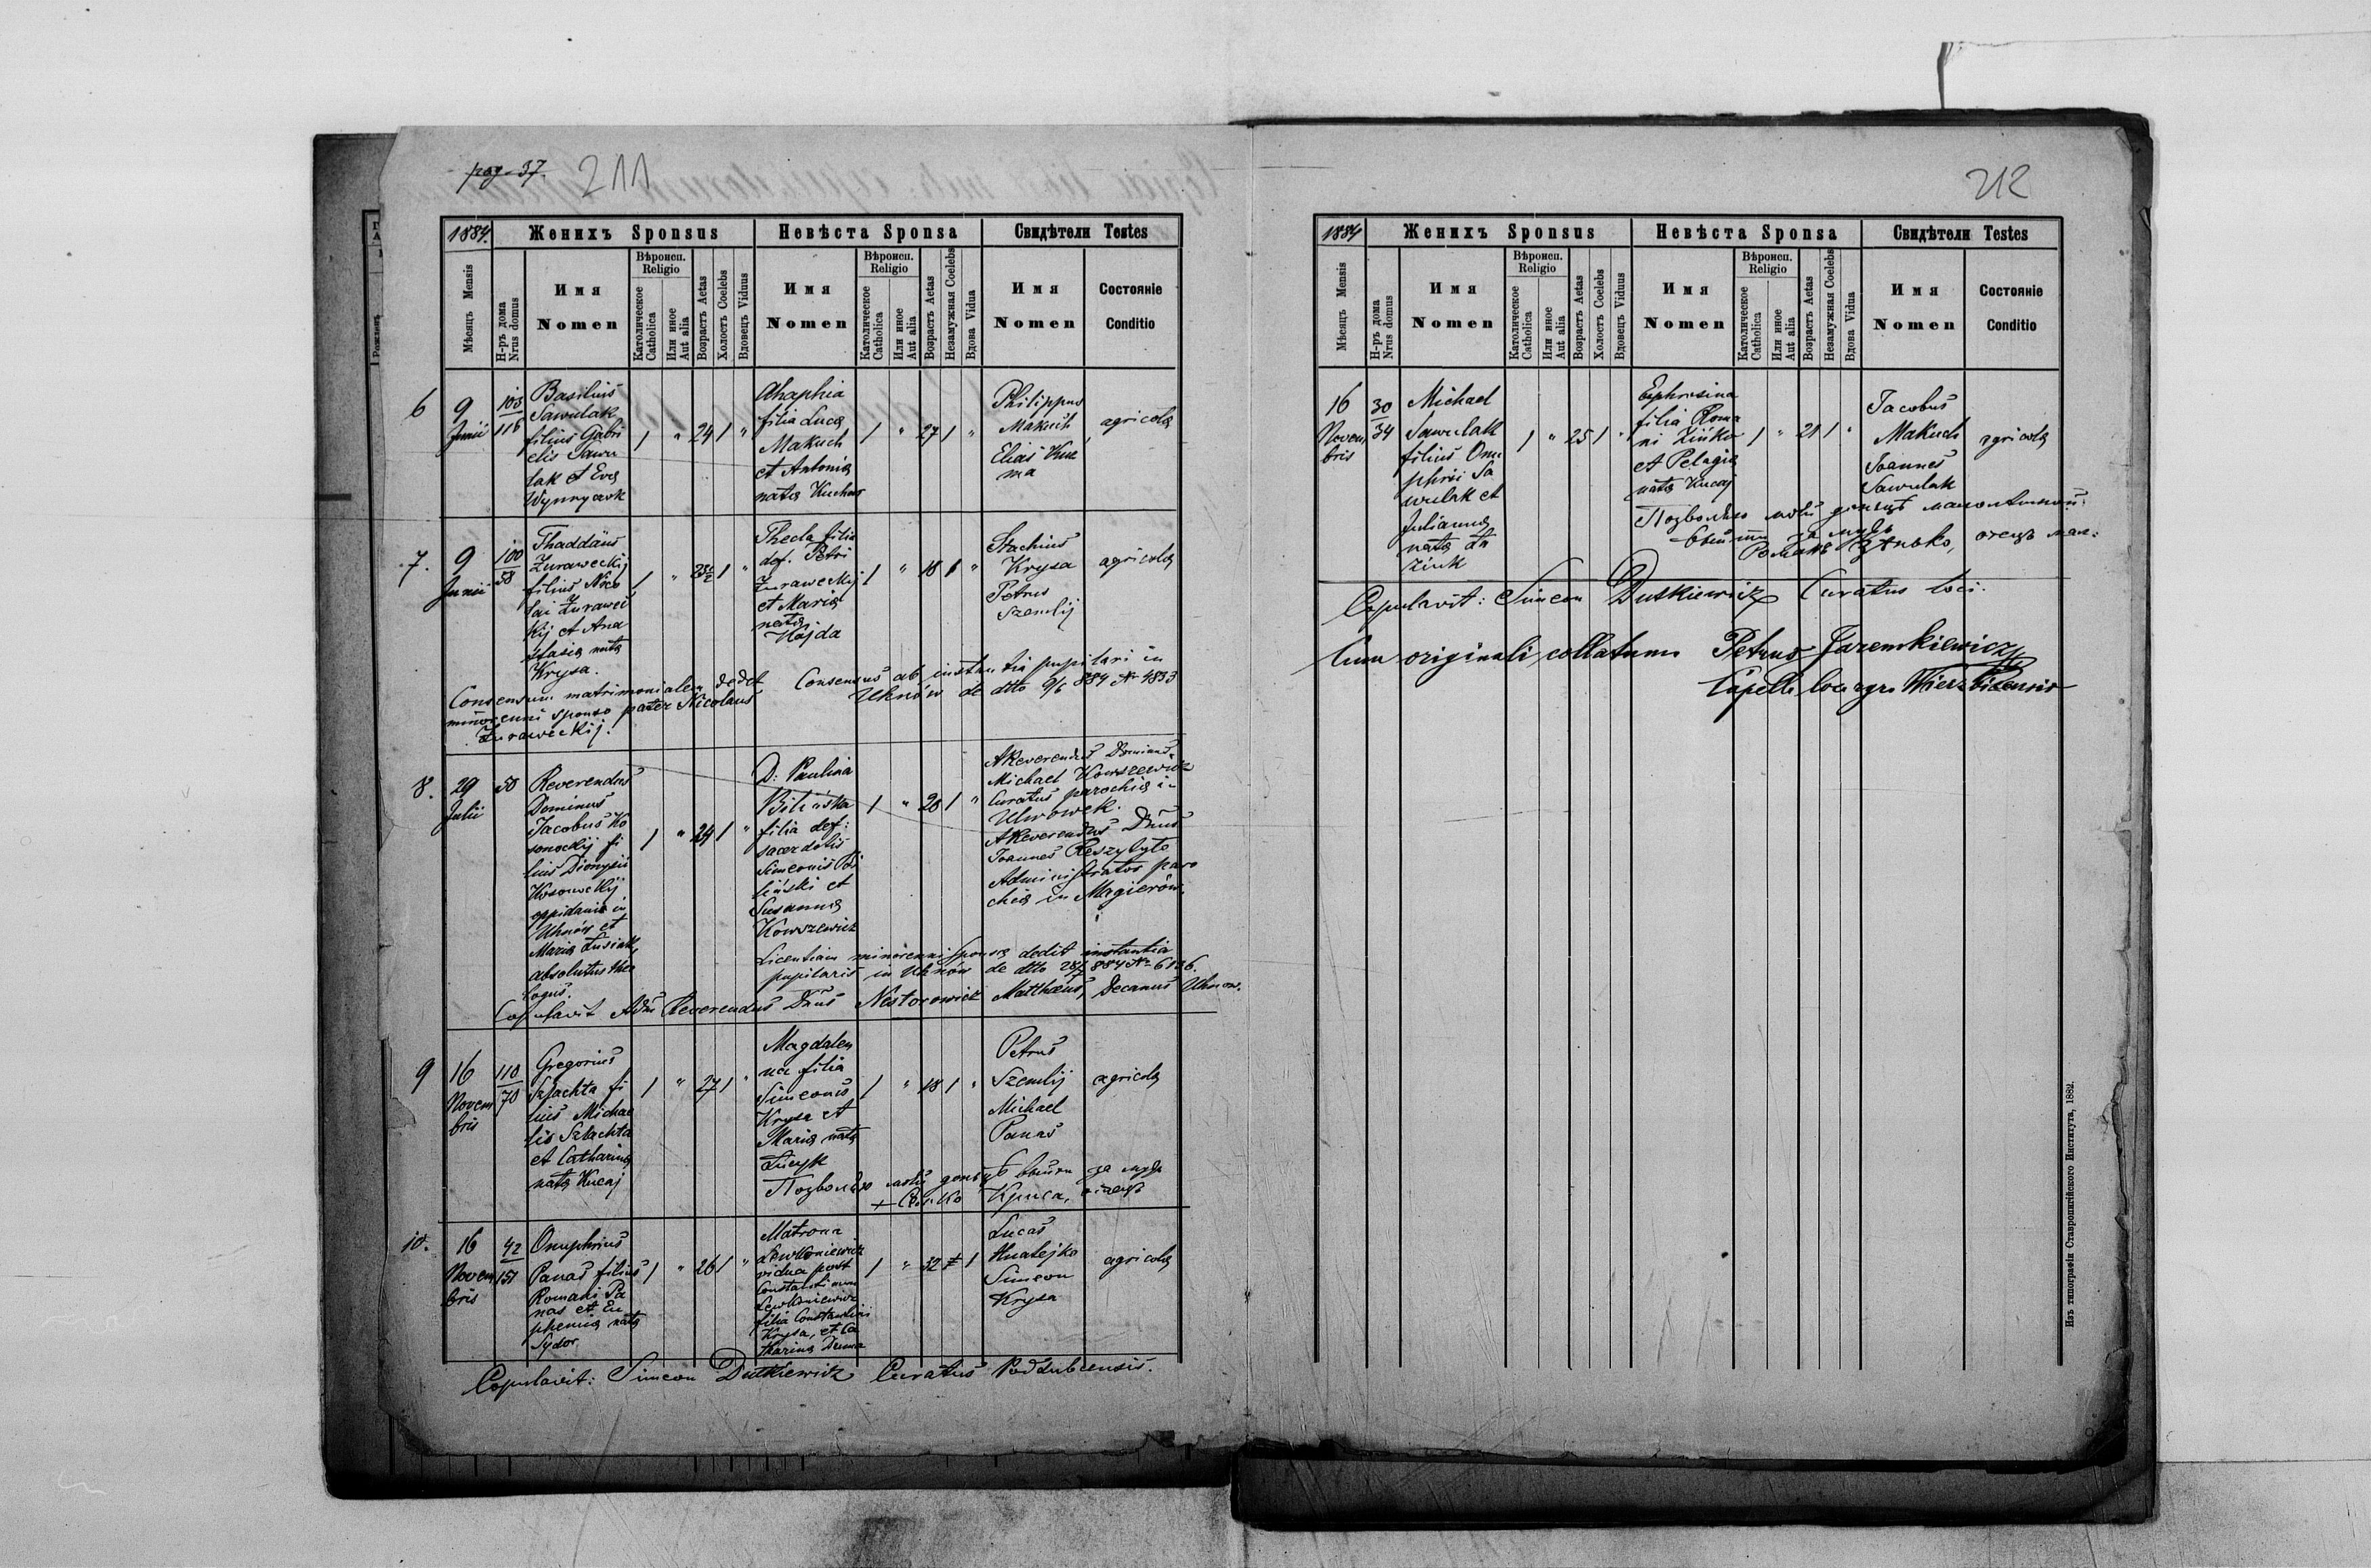 pag. 37.
211
1884.
Женихъ Sponsus
Невѣста Sponsa
Свидѣтели Testes
Мѣсяцъ Mensis
Н-ръ дома
Nrus domus
Имя
Nomen
Вѣроисп.
Religio
Католическое
Catholica
Или иное
Aut alia
Возрастъ Aetas
Холостъ Coelebs
Вдовецъ Viduus
Имя
Nomen
Вѣроисп.
Religio
Католическое
Catholica
Или иное
Aut alia
Возрастъ Aetas
Незамужная Coelebs
Вдова Vidua
Имя
Nomen
Состояніе
Conditio
6
9
Junii
103
116
Basilius
Sawulak
filius Gabri
elis Sawu
lak et Eva
Wynnyczok
1 " 24 1 "
Ahaphia
filia Luca
Makuch
et Antonia
nata Kuchar
1 " 27 1 "
Philippus
Makuch
Elias Kuz
ma
agricola
7.
9
Junii
100
58
Thaddäus
Żuraweckij
filius Nico
lai Żurawec
kij et Ana
stasia nata
Krysa.
1 "
1 "
Thecla filia
def. Petri
Żuraweckij
et Maria
nata
Hajda
1 " 18 1 "
Stachius
Krysa
Petrus
Szemlij
agricola
Consensum matrimonialem dedit
minorenni sponso pater Nicolaus
Żuraweckij.
Consensus ab instantia pupilari in
Uhnów de dtto 9/6 884 № 4833
8.
29
Julii
50
Reverendus
Dominus
Jacobus Ko
sonockij fi
lius Dionysii
oppidanis in
Uhnów et
Maria Łusiak,
absolutus theo
logus.
1 " 24 1 "
D: Paulina
Bilińska
filia def:
sacerdotis
Simeonis Bi
liński et
Susanna
Kowszewicz
1 " 20 1 "
AReverendus Dominus
Michael Kowszewicz
Curatus parochia in
Uhrowek.
AReverendus Dnus
Joannes Reszytyło
Administrator paro
chia in Magierów.
Licentiam minorenni sponsa dedit instantia
pupilaris in Uhnów de dtto 28/7 884 № 6136.
Copulavit Adm Reverendus Dnus Nestorowicz Matthaeus, Decanus Uhnow.
9
16
Novem
bris
110
70
Gregorius
Szlachta fi
lius Michae
lis Szlachta
et Catharina
nata Kucaj
1 " 27 1 "
Magdalen
na filia
Simeonis
Krysa et
Maria nata
Łucyk
1 " 18 1 "
Petrus
Szemlij
Michael
Panas
agricola
Позволяю моѣй доньцѣ выйти за мужъ
+ Сенко Криса, отецъ
10.
16
Novem
bris
42
151
Onuphrius
Panas filius
Romani Pa
nas et Eu
phemia nata
Sydor
1 " 26 1 "
Matrona
Lewkoniewicz
vidua post
Constantinum
Lewkoniewicz
filia Constantini
Krysa, et Ca
tharina Duma
1 " 32 1
Lucas
Hnatejko
Simeon
Krysa
agricola
Copulavit: Simeon Dutkiewicz Curatus Poddubcensis.
212
1884
Женихъ Sponsus
Невѣста Sponsa
Свидѣтели Testes
Мѣсяцъ Mensis
Н-ръ дома
Nrus domus
Имя
Nomen
Вѣроисп.
Religio
Католическое
Catholica
Или иное
Aut alia
Возрастъ Aetas
Холостъ Coelebs
Вдовецъ Viduus
Имя
Nomen
Вѣроисп.
Religio
Католическое
Catholica
Или иное
Aut alia
Возрастъ Aetas
Незамужная Coelebs
Вдова Vidua
Имя
Nomen
Состояніе
Conditio
16
Novem
bris
30
34
Michael
Sawulak
filius Onu
phrii Sa
wulak et
Julianna
nata Ła
ziuk
1 " 25 1 "
Euphrosina
filia Roma
ni Zińko
et Pelagia
nata Kucaj
1 " 21 1 "
Jacobus
Makuch
Joannes
Sawulak
agricola
Позволяю моѣй доньцѣ малолѣтной
выйти за мужъ
Романъ Зѣнько, отецъ мал:
Copulavit: Simeon Dutkiewicz Curatus loci.
Cum originali collatum Petrus Jaremkiewicz
Capell. loci Wierzbicensis
Изъ типографіи Ставропигійского Института, 1882.